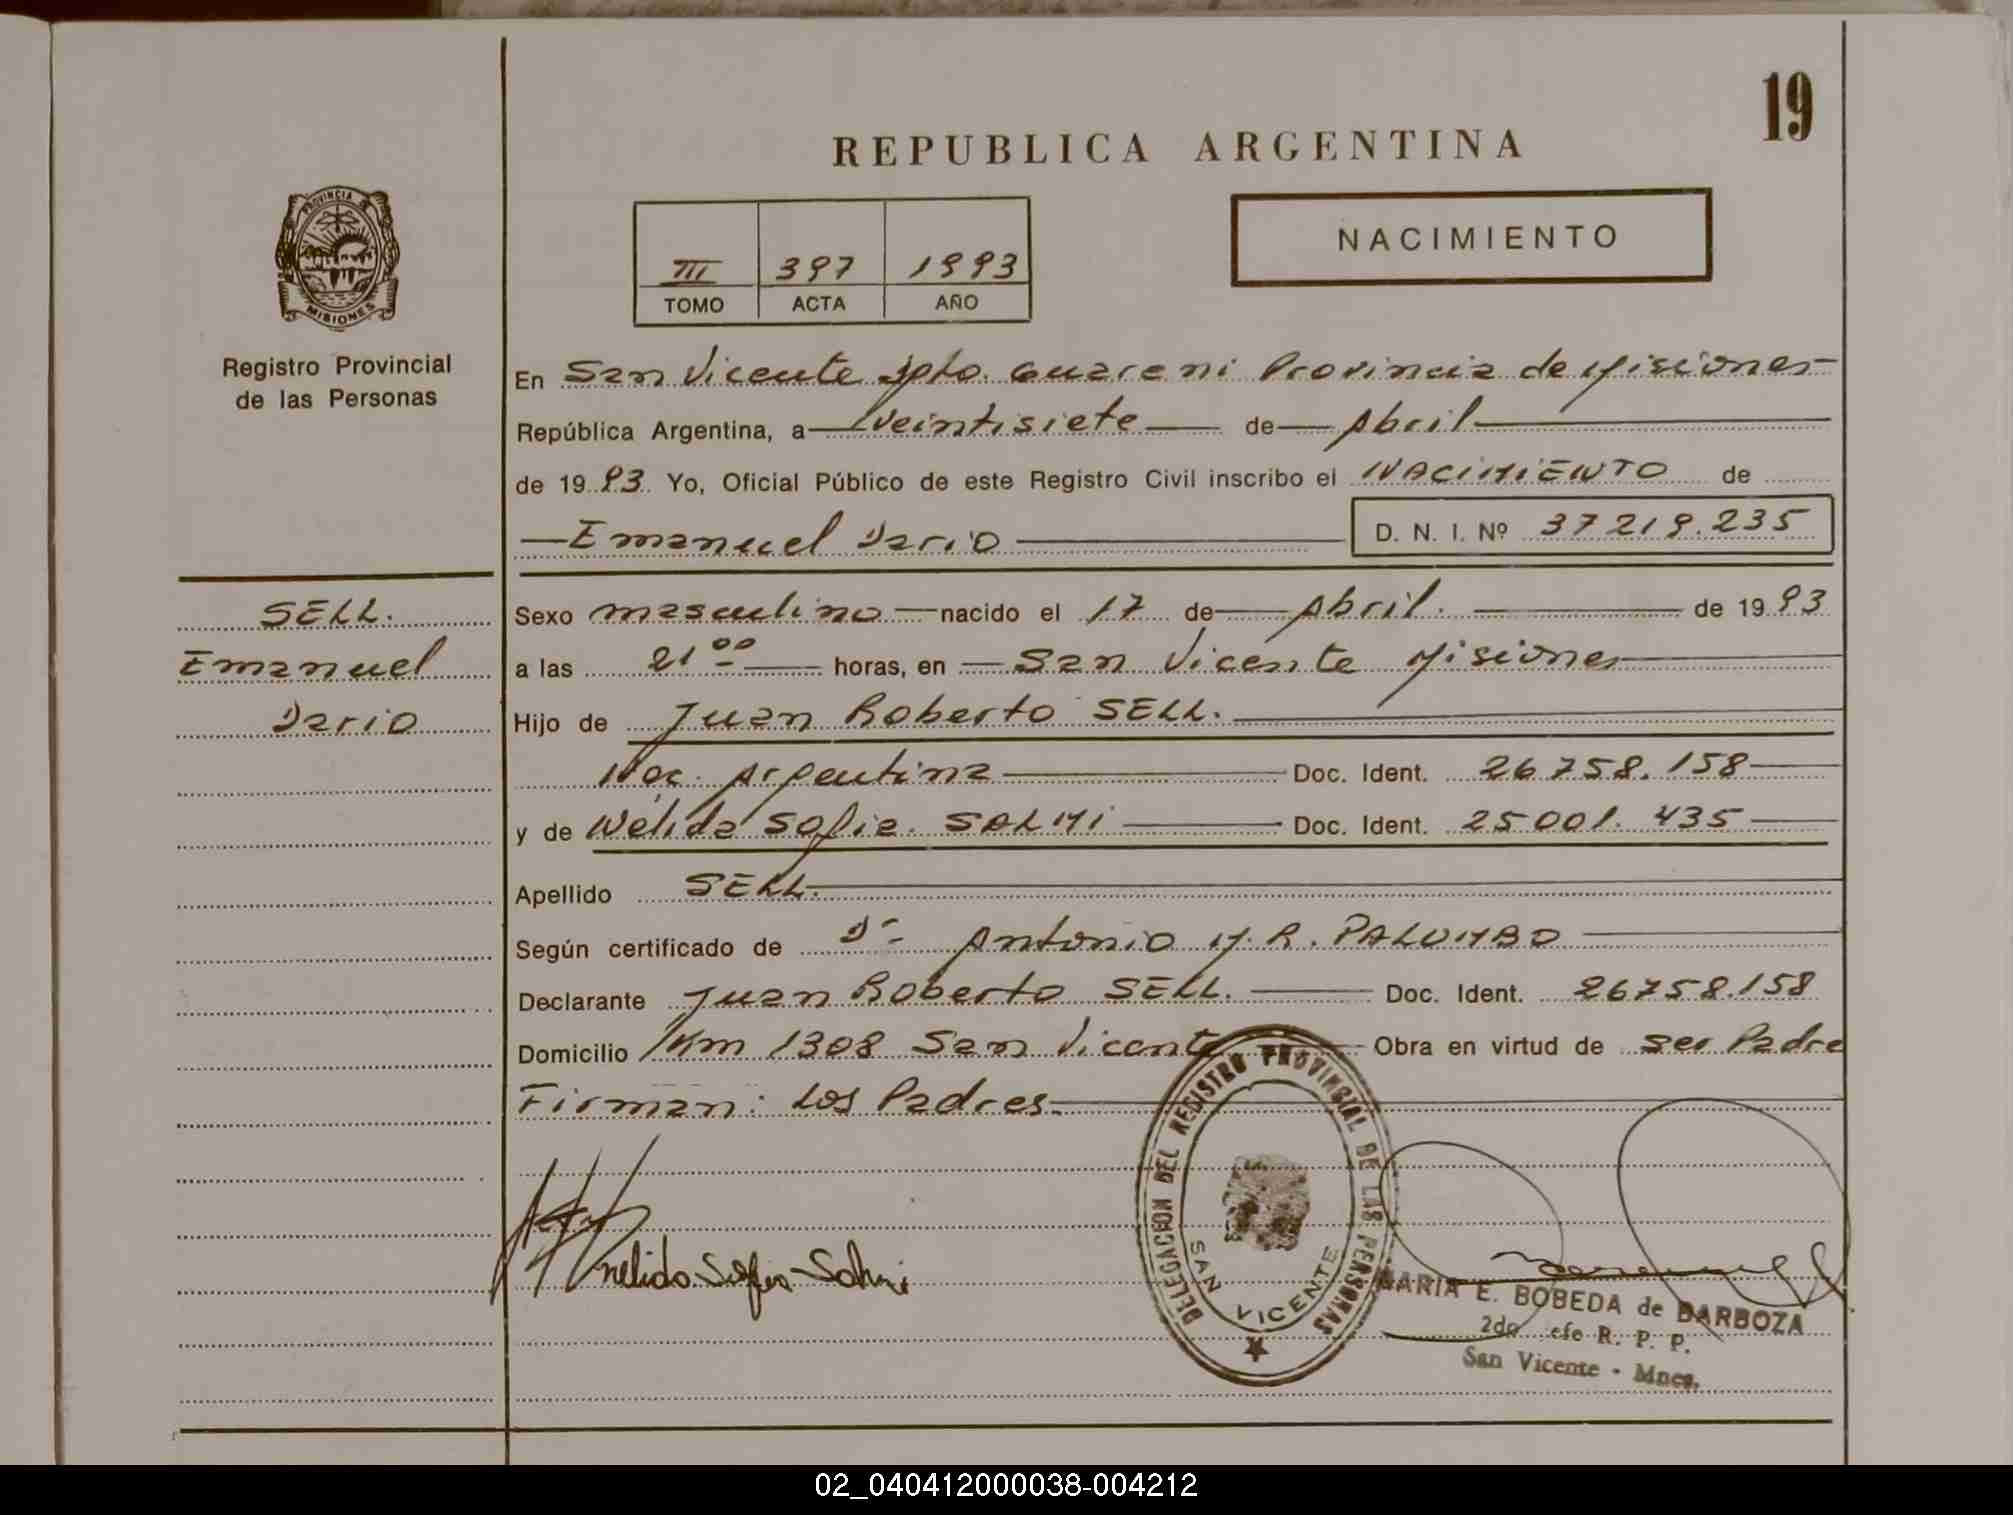 19
REPUBLICA ARGENTINA
PROVINCIA DE
MISIONES
Registro Provincial
de las Personas
III 397 1993
TOMO ACTA AÑO
NACIMIENTO
En San Vicente Dpto. Guarani Provincia de Misiones
República Argentina, a veintisiete de Abril
de 1993 Yo, Oficial Público de este Registro Civil inscribo el NACIMIENTO de
Emanuel Dario D. N. I. Nº 37219.235
SELL.
Emanuel
Dario
Sexo masculino nacido el 17 de Abril. de 1993
a las 21 00 horas, en San Vicente Misiones
Hijo de Juan Roberto SELL.
Nac. Argentina Doc. Ident. 26758.158
y de Nélida Sofia. SALMI Doc. Ident. 25001.435
Apellido SELL.
Según certificado de Dr Antonio M. R. PALUMBO
Declarante Juan Roberto SELL. Doc. Ident. 26758.158
Domicilio Km 1308 San Vicente Obra en virtud de ser Padre
Firman: Los Padres.
nelida Sofia Salmi
DELEGACION DEL REGISTRO PROVINCIAL DE LAS PERSONAS
SAN VICENTE
MARIA E. BOBEDA de BARBOZA
2do efe R. P. P.
San Vicente - Mnes.
02_040412000038-004212